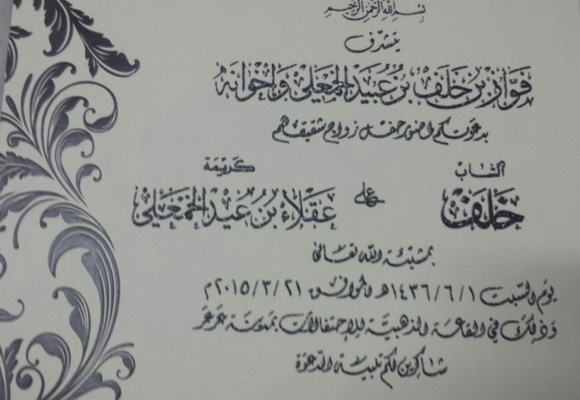 بسم الله الرحمن الرحيم
يتشرف
فواز بن خلف بن عبيد الخمعلي واخوانه
بدعوتكم لحضور حفل زواج شقيقهم
الشاب
كريمة
خلف
على
عقلاء بن عيد الخمعلي
بمشيئة الله تعالى
يوم السبت ١/٦/١٤٣٦هـ الموافق ٢١/٣/٢٠١٥م
وذلك في القاعة الذهبية للاحتفالات بمدينة عرعر
شاكرين لكم تلبية الدعوة